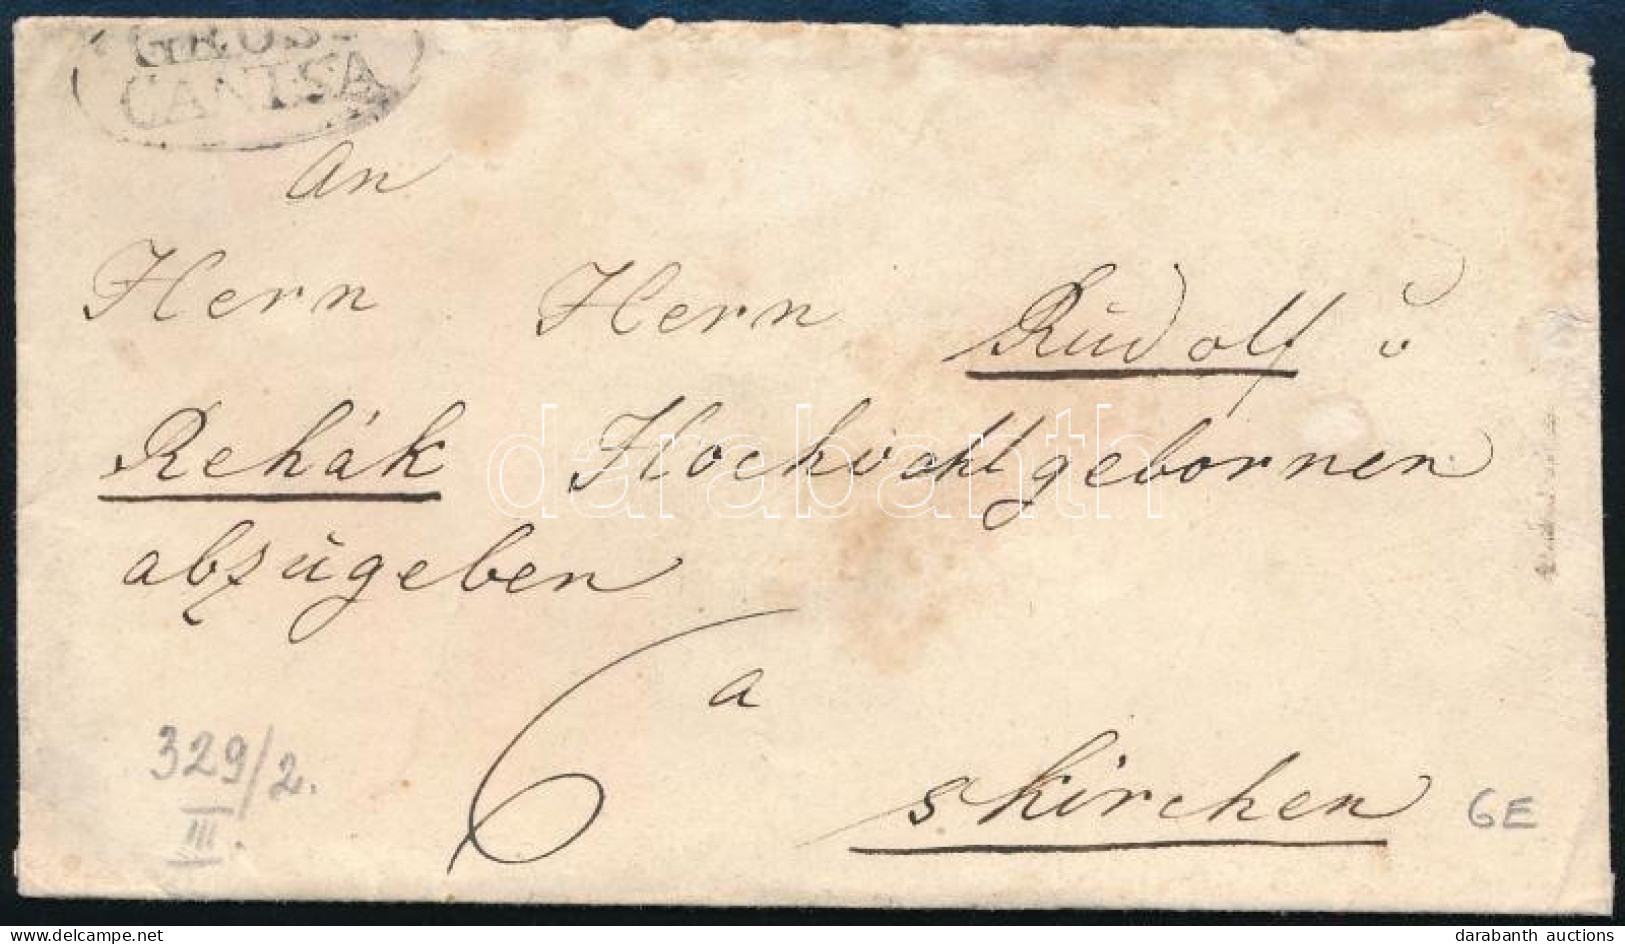 GROS-
CANISA
An
Herrn Herrn Rudolf v
Rehák Hochwohlgebornen
abzugeben
6
a
skirchen
329/2.
III.
GE
darabanth
darabanth auctions